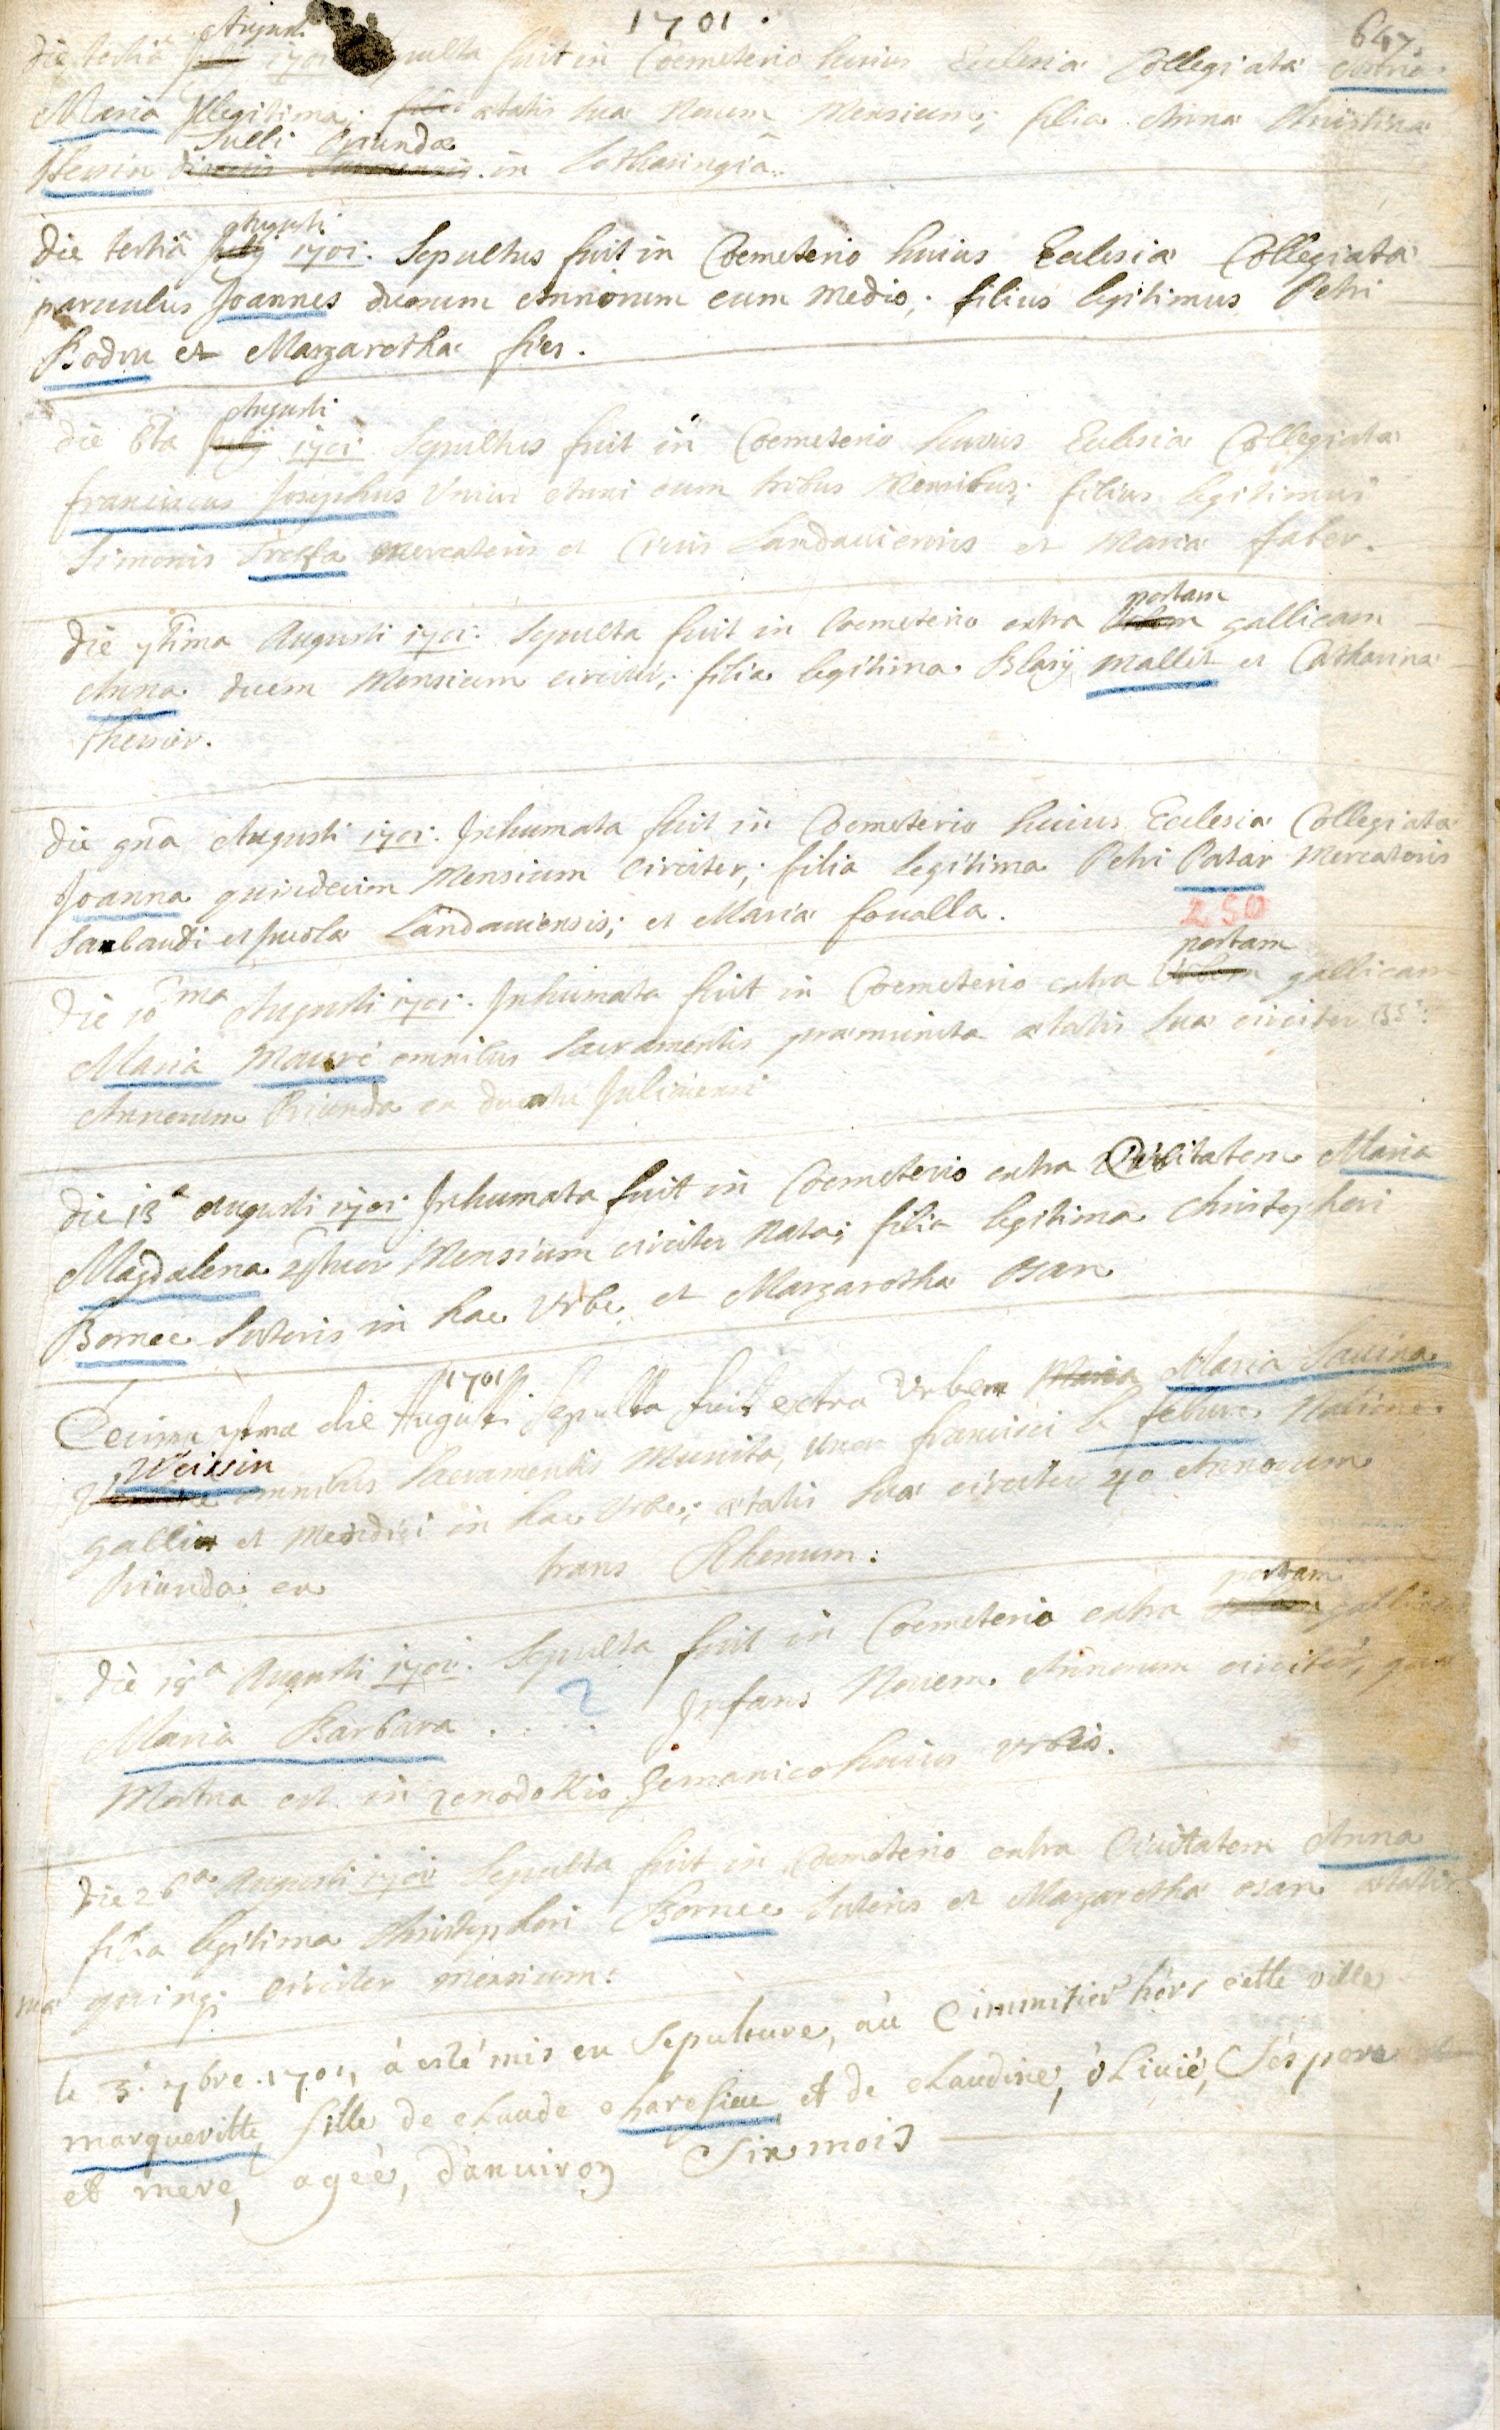 1701.
647.
Augusti
die tertiâ July 1701 Sepulta fuit in Coemeterio huius Eclesiæ Collegiatæ Anna
Maria Illegitima; ætatis suæ Nouem Mensium; filia Anna Christina
Sulli Oriunda
Hessin in Lotharingiâ.
Augusti
die tertiâ July 1701. Sepultus fuit in Coemeterio huius Eclesiæ Collegiatæ
paruulus Joannes duorum Annorum cum medio; filius legitimus Petri
Bodvu et Margaretha fies.
Augusti
die 6ta July 1701 Sepultus fuit in Coemeterio huius Eclesiæ Collegiatæ
franciscus Josephus Vnius Anni cum tribus Mensibus; filius legitimus
Simonis Trekfa mercatoris et Ciuis Landauiensis et Maria faber.
portam
die 7tima Augusti 1701. Sepulta fuit in Coemeterio extra Urbem gallicam
Anna duem Mensium circiter; filia legitima Blasÿ mallit et Catharina
thessier.
die 9na Augusti 1701. Inhumata fuit in Coemeterio huius Ecclesiæ Collegiatæ
Joanna quindecim Mensium circiter; filia legitima Petri Patar Mercatoris
Sarbaudi et Incola Landauiensis; et Mariæ foualla.
250
portam
die 10ma Augusti 1701. Inhumata fuit in Coemeterio extra Urbem gallicam
Maria Mouré omnibus Sacramentis præmunita ætatis suæ circiter 35:
Annorum Oriunda ex ducatu Juliacensi
die 13a Augusti 1701 Inhumata fuit in Coemeterio extra Ciuitatem Maria
Magdalena Mensium circiter Nata; filia legitima Christopheri
Bornee Sutoris in hac Vrbe et Margaretha osan
1701
Decima 7tma die Augusti Sepulta fuit extra Vrbem Maria Maria Sauina
Weissin
omnibus Sacramentis Munita, Vxor francisci le febure Natione
gallia et Mendici in hac Vrbe; ætatis suæ circiter 40 Annorum
Oriunda ex trans Rhenum:
portam
die 18a Augusti 1701. Sepulta fuit in Coemeterio extra Urbem gallicam
Maria Barbara . . . . ? Infans Nouem Annorum circiter, quæ
Mortua est in Xenodokio Germanico huius Vrbis.
die 26a Augusti 1701 Sepulta fuit in Coemeterio extra Ciuitatem Anna
filia legitima Christopheri Bornee Sutoris et Margaretha osan ætatis
suæ quinq; circiter mensium:
le 3e 7bre. 1701, à esté mis en Sepulture, aù Cimmitier hors cette ville
margueritte fille de claude charesieu, et de claudine, òliuié, Ses pere
et mere, ageé, d'anuiron Six mois